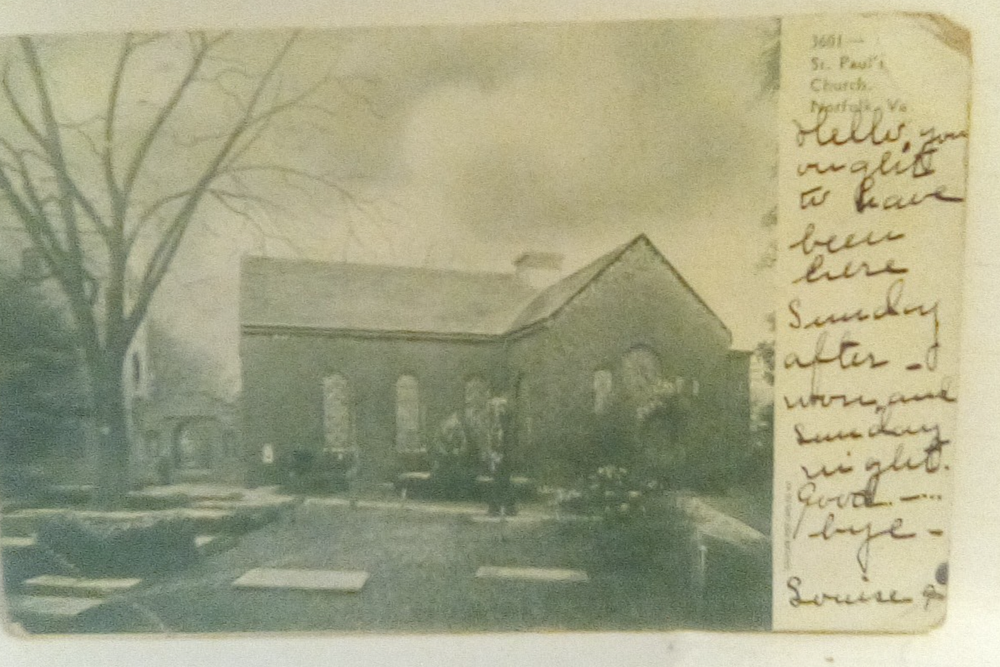 3601 —
St. Paul's
Church,
Norfolk, Va.
Hello, you
ought
to have
been
here
Sunday
after –
noon, and
Sunday
night.
Good –
bye –
Louise